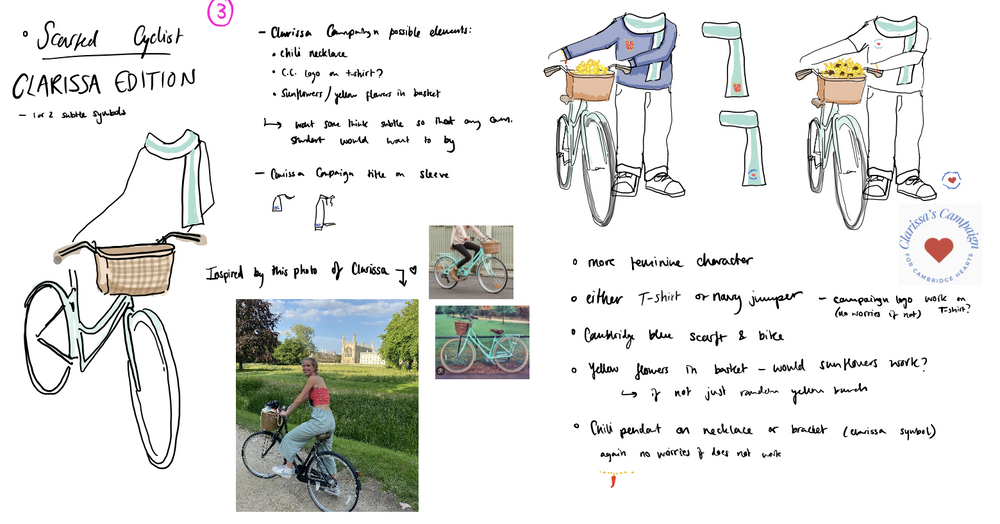 ③
• Scarfed Cyclist
CLARISSA EDITION
– 1 or 2 subtle symbols
– Clarissa Campaign possible elements:
• chili necklace
• C.C. logo on t-shirt?
• Sunflowers / yellow flowers in basket
↳ want some think subtle so that any cam.
student would want to by
– Clarissa Campaign title on sleeve
Inspired by this photo of Clarissa ♡
Clarissa's Campaign
FOR CAMBRIDGE HEARTS
• more feminine character
• either T-shirt or navy jumper – campaign logo work on
(no worries if not) T-shirt?
• Cambridge blue scarf & bike
• Yellow flowers in basket – would sunflowers work?
↳ if not just random yellow bunch
• Chili pendant on necklace or bracket (clarissa symbol)
again no worries if does not work